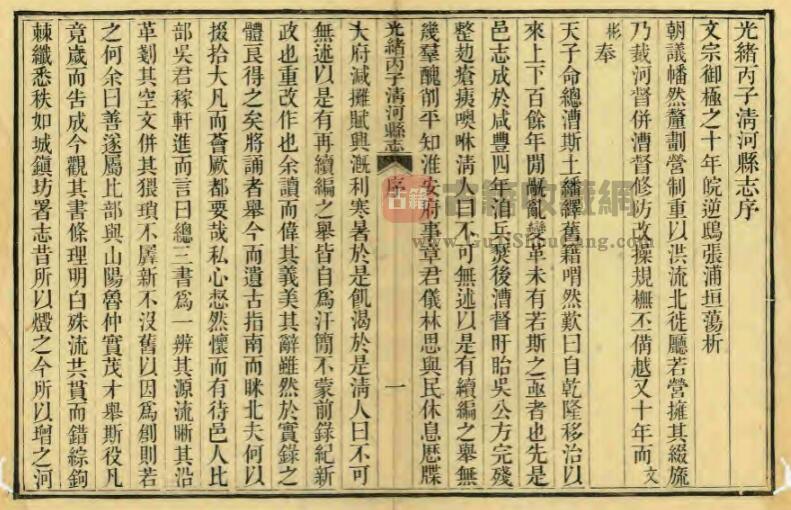 光緒丙子清河縣志序
文宗御極之十年皖逆鴟張浦垣蕩析
朝議幡然釐劃營制重以洪流北徙廳若營擁其綴旒
乃裁河督併漕督修防改操規橅丕備越又十年而文
彬奉
天子命總漕斯土繙繹舊籍喟然歎曰自乾隆移治以
來上下百餘年閒厯亂變革未有若斯之亟者也先是
邑志成於咸豐四年洎兵燹後漕督盱眙吳公方完殘
整刱瘡痍噢咻清人曰不可無述以是有續編之舉無
幾羣醜削平知淮安府事章君儀林思與民休息厯牒
光緒丙子清河縣志 序 一
大府減攤賦興漑利寒暑於是飢渴於是清人曰不可
無述以是有再續編之舉皆自爲汗簡不蒙前錄紀新
政也重改作也余讀而偉其義美其辭雖然於實錄之
體良得之矣將誦者舉今而遺古指南而眯北夫何以
掇拾大凡而薈厥都要哉私心惄然懷而有待邑人比
部吳君稼軒進而言曰總三書爲一辨其源流晰其沿
革剗其空文併其猥瑣不廑新不沒舊以因爲創則若
之何余曰善遂屬比部與山陽魯仲實茂才舉斯役凡
竟歲而告成今觀其書條理明白殊流共貫而錯綜鉤
棘纖悉秩如城鎭坊署志昔所以燬之今所以增之河
古籍收藏網
www.GuJiShouCang.com